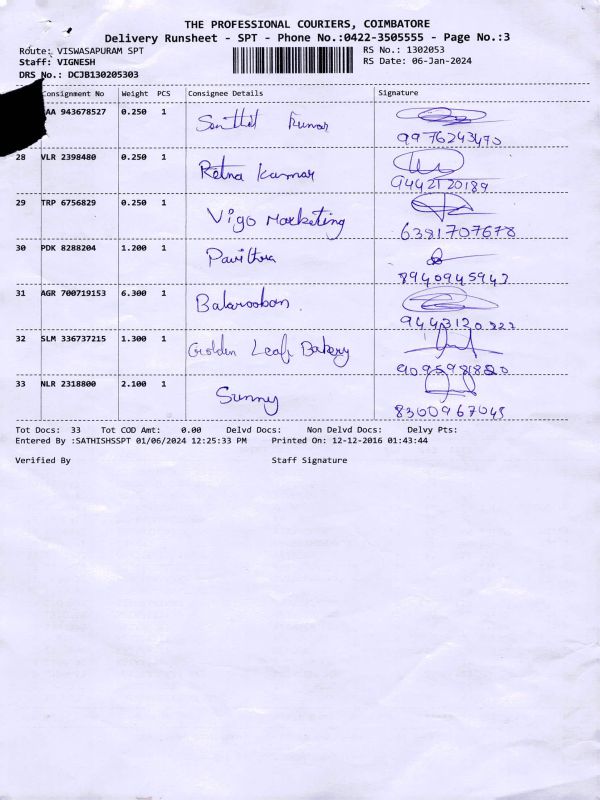 THE PROFESSIONAL COURIERS, COIMBATORE
Delivery Runsheet - SPT - Phone No.:0422-3505555 - Page No.:3
Route: VISWASAPURAM SPT
RS No.: 1302053
Staff: VIGNESH
RS Date: 06-Jan-2024
DRS No.: DCJB130205303
Consignment No Weight PCS Consignee Details Signature
AA 943678527 0.250 1 Senthil Kumar
9976243470
28 VLR 2398480 0.250 1 Retna Kumar
9442120189
29 TRP 6756829 0.250 1 Vigo Marketing
6381707678
30 PDK 8288204 1.200 1 Pavithra
8940945943
31 AGR 700719153 6.300 1 Balarooban
32 SLM 336737215 1.300 1 Golden Leaf Bakery
33 NLR 2318800 2.100 1 Sunny
8300967045
Tot Docs: 33 Tot COD Amt: 0.00 Delvd Docs: Non Delvd Docs: Delvy Pts:
Entered By :SATHISHSSPT 01/06/2024 12:25:33 PM Printed On: 12-12-2016 01:43:44
Verified By Staff Signature